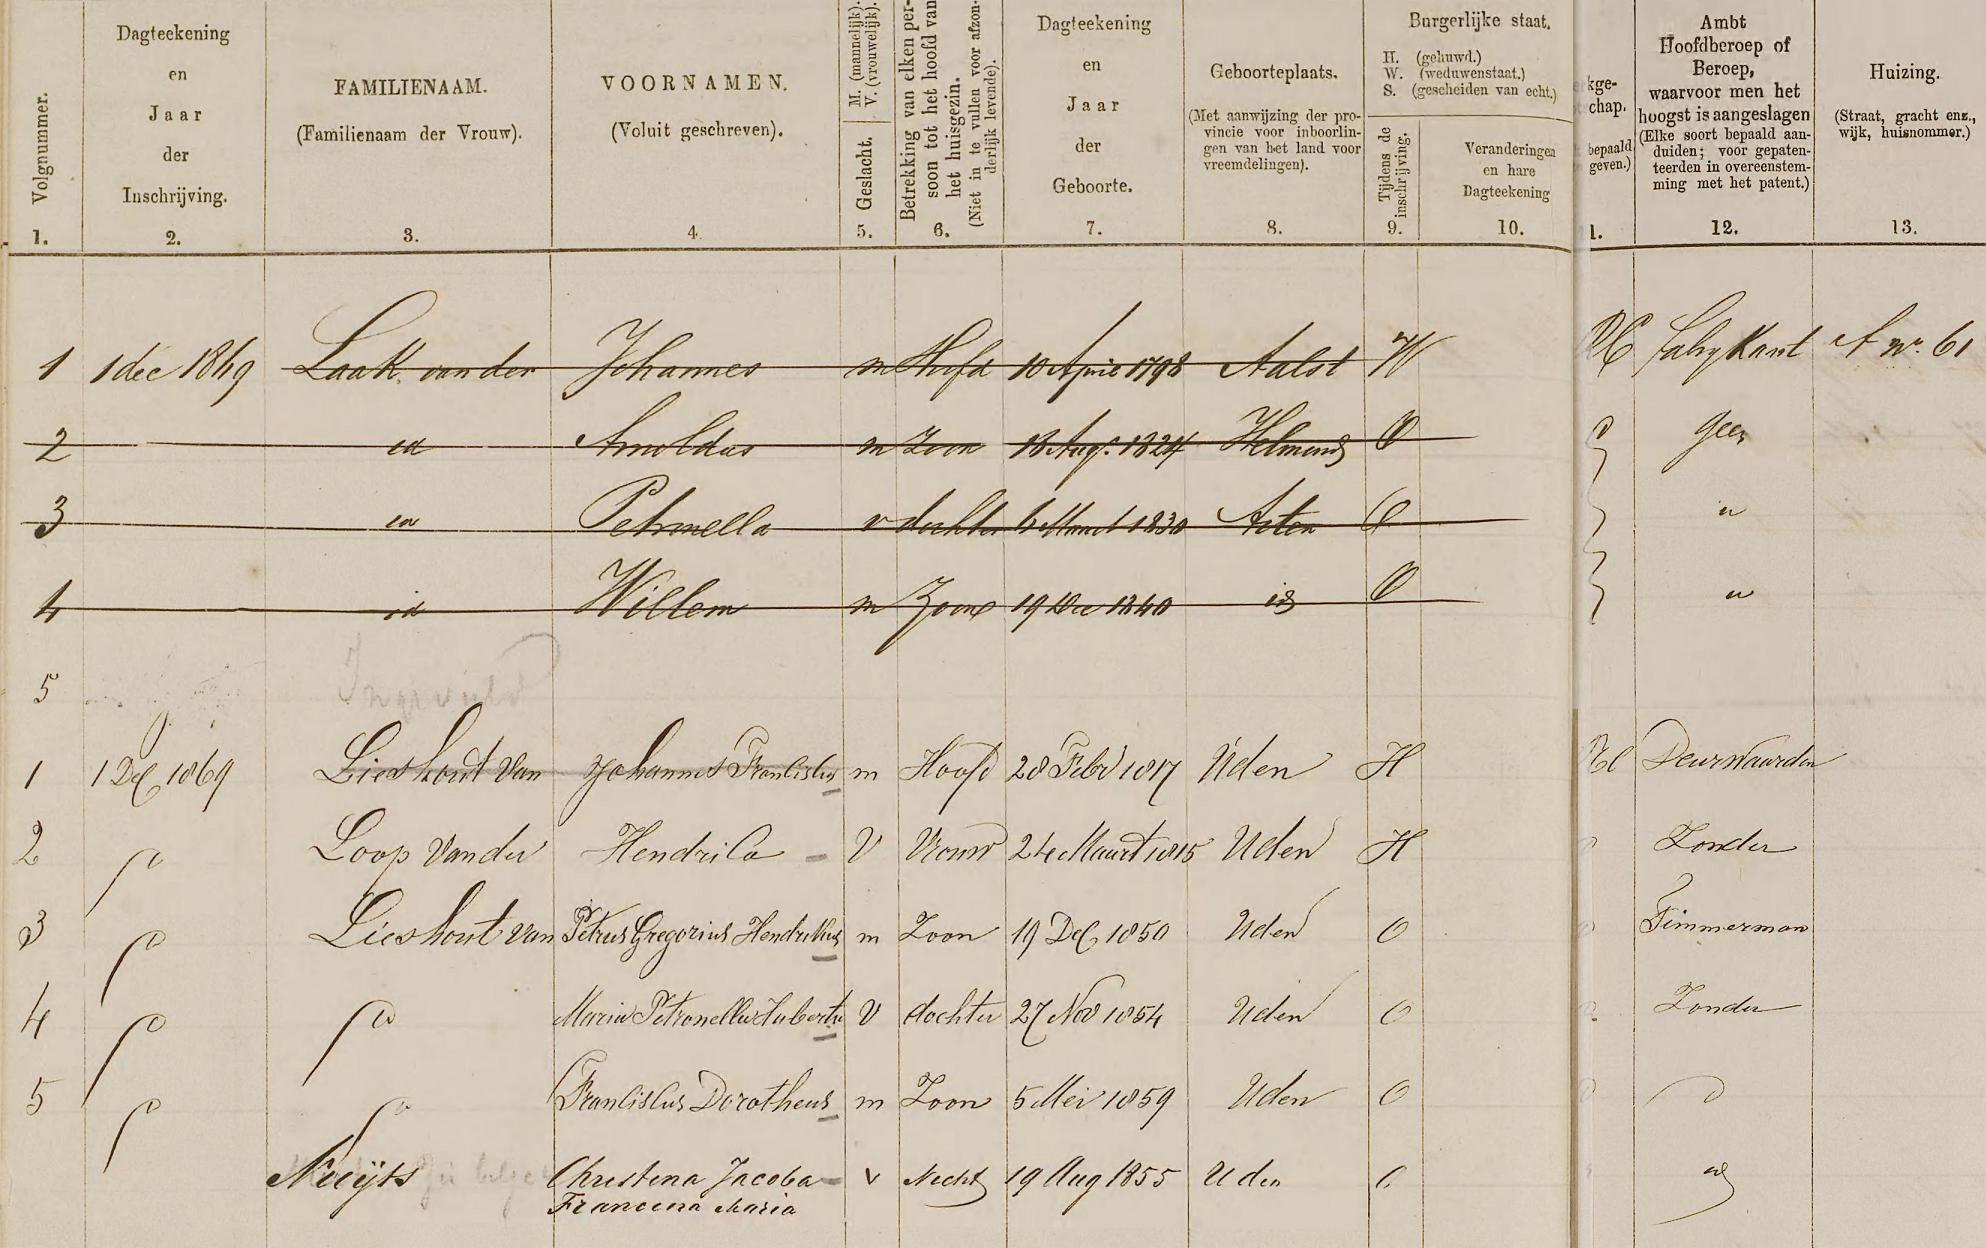 Volgnummer.
1.
Dagteekening
en
Jaar
der
Inschrijving.
2.
FAMILIENAAM.
(Familienaam der Vrouw).
3.
VOORNAMEN.
(Voluit geschreven).
4.
M. (mannelijk).
V. (vrouwelijk).
Geslacht.
5.
Betrekking van elken per-
soon tot het hoofd van
het huisgezin.
(Niet in te vullen voor afzon-
derlijk levende).
6.
Dagteekening
en
Jaar
der
Geboorte.
7.
Geboorteplaats.
(Met aanwijzing der pro-
vincie voor inboorlin-
gen van het land voor
vreemdelingen).
8.
Burgerlijke staat.
H. (gehuwd.)
W. (weduwenstaat.)
S. (gescheiden van echt.)
Tijdens de
inschrijving.
9.
Veranderingen
en hare
Dagteekening
10.
kge-
chap.
bepaald
geven.)
1.
Ambt
Hoofdberoep of
Beroep,
waarvoor men het
hoogst is aangeslagen
(Elke soort bepaald aan-
duiden; voor gepaten-
teerden in overeenstem-
ming met het patent.)
12.
Huizing.
(Straat, gracht enz.,
wijk, huisnommer.)
13.
1 1 dec 1869 Laak van der Johannes m Hofd 10 April 1798 Aalst W RC fabrykant A no. 61
2 id Arnoldus m Zoon 18 Aug. 1824 Helmond O geen
3 id Petronella v dochter 6 Maart 1830 Asten O "
4 id Willem m Zoon 19 Dec 1840 id O "
5
1 1 Dec 1869 Lieshout Van Johannes Franciscus m Hoofd 28 Febr 1817 Uden H RC Deurwaarder
2 Loop Van der Hendrica V Vrouw 24 Maart 1815 Uden H Zonder
3 Lieshout Van Petrus Gregorius Hendrikus m Zoon 19 Dec 1850 Uden O Timmerman
4 Maria Petronella Huberta V dochter 27 Nov 1854 Uden O Zonder
5 Franciscus Dorotheus m Zoon 5 Mei 1859 Uden O
Nuijts Christina Jacoba v Necht 19 Aug 1855 Uden O id
Francena Maria